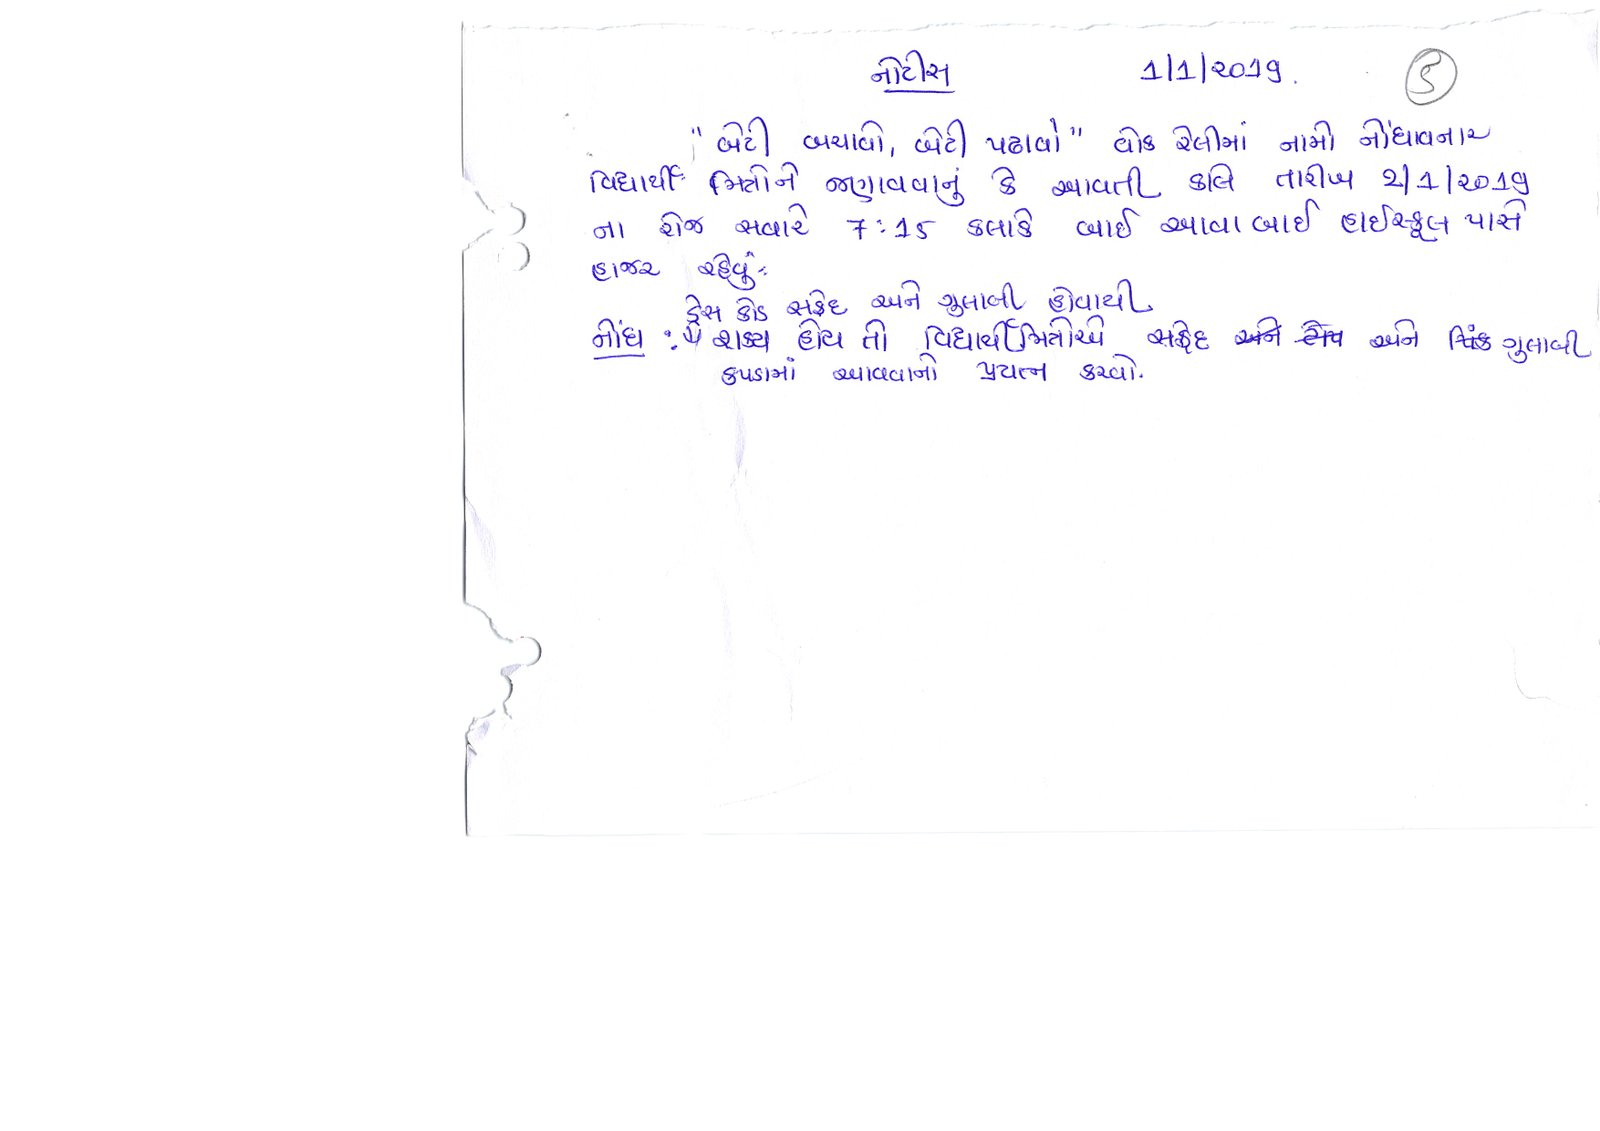 નોટીસ 1/1/૨૦19.
"બેટી બચાવો, બેટી પઢાવો" વોક રેલીમાં નામો નોંધાવનાર
વિદ્યાર્થી મિત્રોને જણાવવાનું કે આવતી કાલે તારીખ ૨/1/૨૦19
ના રોજ સવારે 7:15 કલાકે બાઈ આવાબાઈ હાઈસ્કૂલ પાસે
હાજર રહેવું.
ડ્રેસ કોડ સફેદ અને ગુલાબી હોવાથી
નોંધ : શક્ય હોય તો વિદ્યાર્થીમિત્રોએ સફેદ અને ગુલાબી
કપડામાં આવવાનો પ્રયત્ન કરવો.